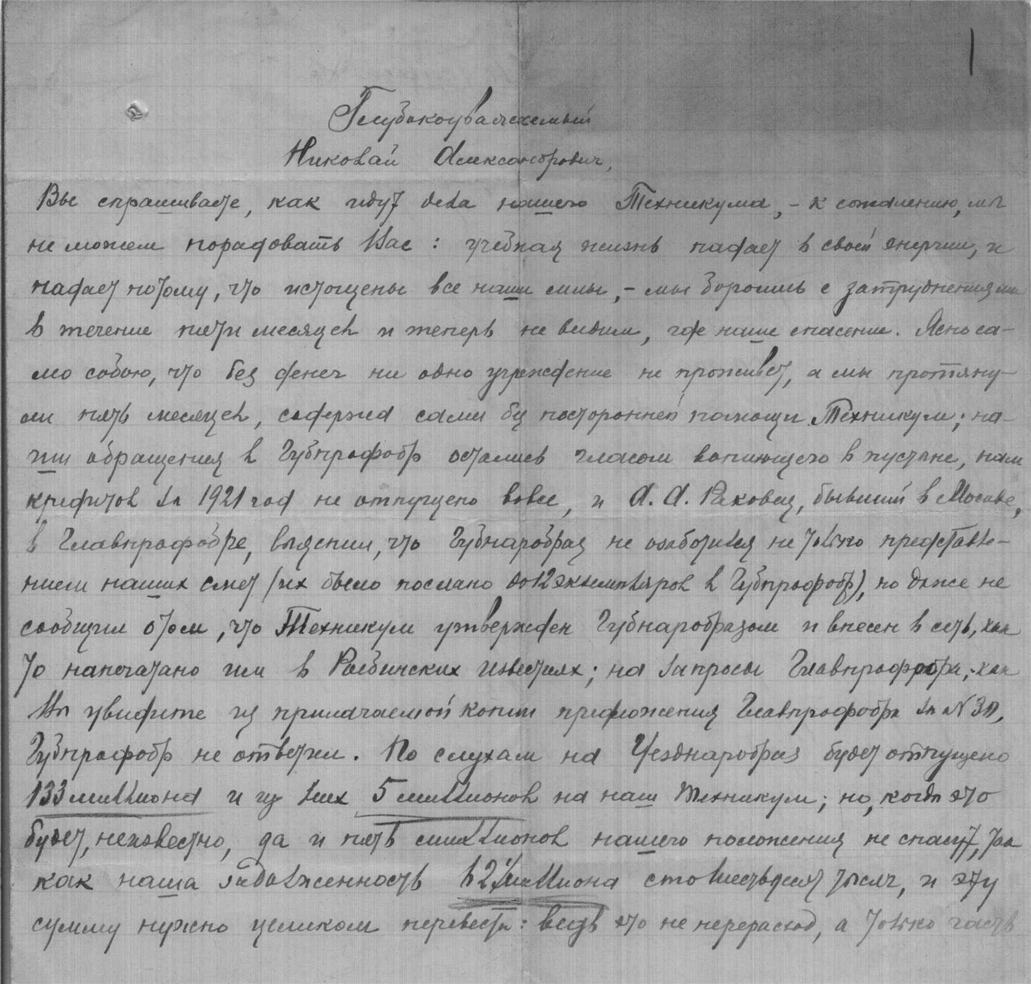 Глубокоуважаемый
Николай Александрович,
Вы спрашиваете, как идут дела нашего Техникума, - к сожалению, мы
не можем порадовать Вас: учебная жизнь падает в своей энергии, и
падает потому, что истощены все наши силы, - мы боролись с затруднениями
в течение пяти месяцев и теперь не видим, где наше спасение. Ясно са-
мо собою, что без денег ни одно учреждение не проживет, а мы протяну-
ли пять месяцев, содержа сами без посторонней помощи Техникум; на-
ши обращения в Губпрофобр остались гласом вопиющего в пустыне, нам
кредитов за 1921 год не отпущено вовсе, и А. А. Раковец, бывший в Москве,
в Главпрофобре, выяснил, что Губнаробраз не озаботился не только представле-
нием наших смет (их было послано до 12 экземпляров в Губпрофобр), но даже не
сообщил о том, что Техникум утвержден Губнаробразом и внесен в сеть, как
то напечатано им в Рыбинских известиях; на запросы Главпрофобра, как
Вы увидите из прилагаемой копии предложения Главпрофобра за №
Губпрофобр не ответил. По слухам на Уезднаробраз будет отпущено
133 миллиона и из них 5 миллионов на наш Техникум; но, когда это
будет, неизвестно, да и пять миллионов нашего положения не спасут, так
как наша задолженность 62 миллиона сто шестьдесят тысяч, и эту
сумму нужно целиком перевести: ведь это не перерасход, а только часть